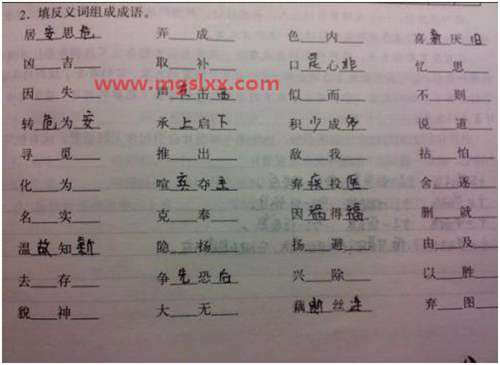 2. 填反义词组成成语。
居安思危 弄___成___ 色___内___ 喜新厌旧
凶___吉___ 取___补___ 口是心非 忆___思___
因___失___ 声东击西 似___而___ 不___则___
www.mgslxx.com
转危为安 承上启下 积少成多 说___道___
寻___觅___ 推___出___ 敌___我___ 拈___怕___
化___为___ 喧宾夺主 弃___投___ 舍___逐___
名___实___ 克___奉___ 因祸得福 删___就___
温故知新 隐___扬___ 扬___避___ 由___及___
去___存___ 争先恐后 兴___除___ 以___胜___
貌___神___ 大___无___ 藕断丝连 弃___图___